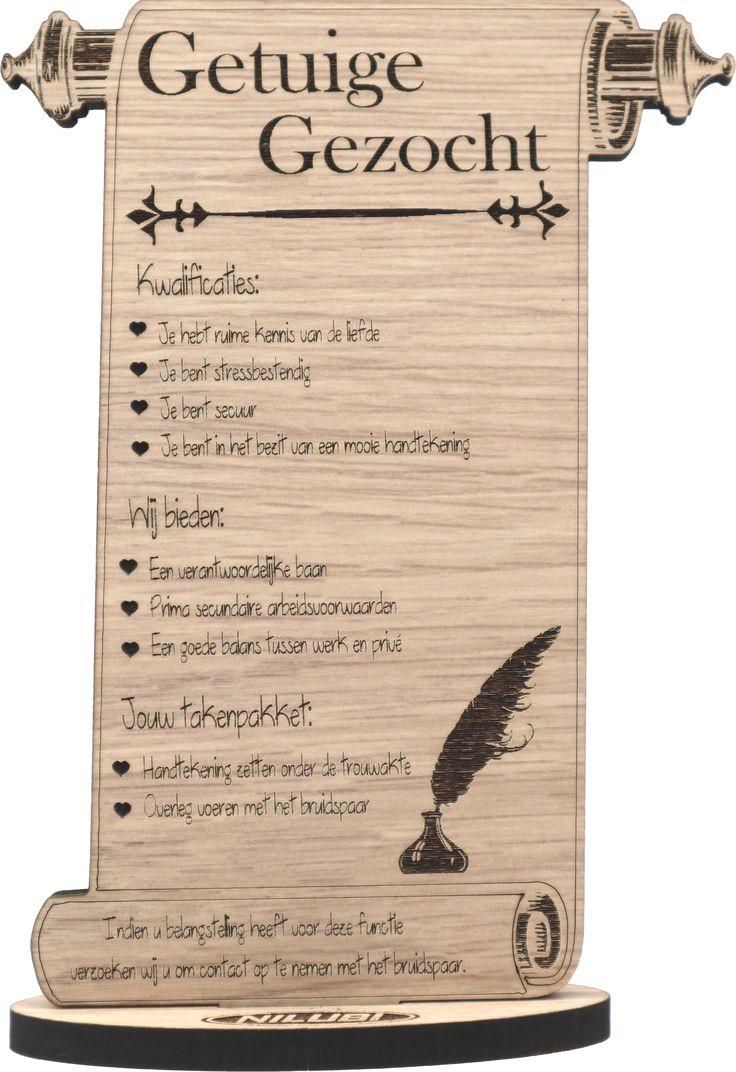 Getuige
Gezocht
Kwalificaties:
Je hebt ruime kennis van de liefde
Je bent stressbestendig
Je bent secuur
Je bent in het bezit van een mooie handtekening
Wij bieden:
Een verantwoordelijke baan
Prima secundaire arbeidsvoorwaarden
Een goede balans tussen werk en privé
Jouw takenpakket:
Handtekening zetten onder de trouwakte
Overleg voeren met het bruidspaar
Indien u belangstelling heeft voor deze functie
verzoeken wij u om contact op te nemen met het bruidspaar.
NILUBI